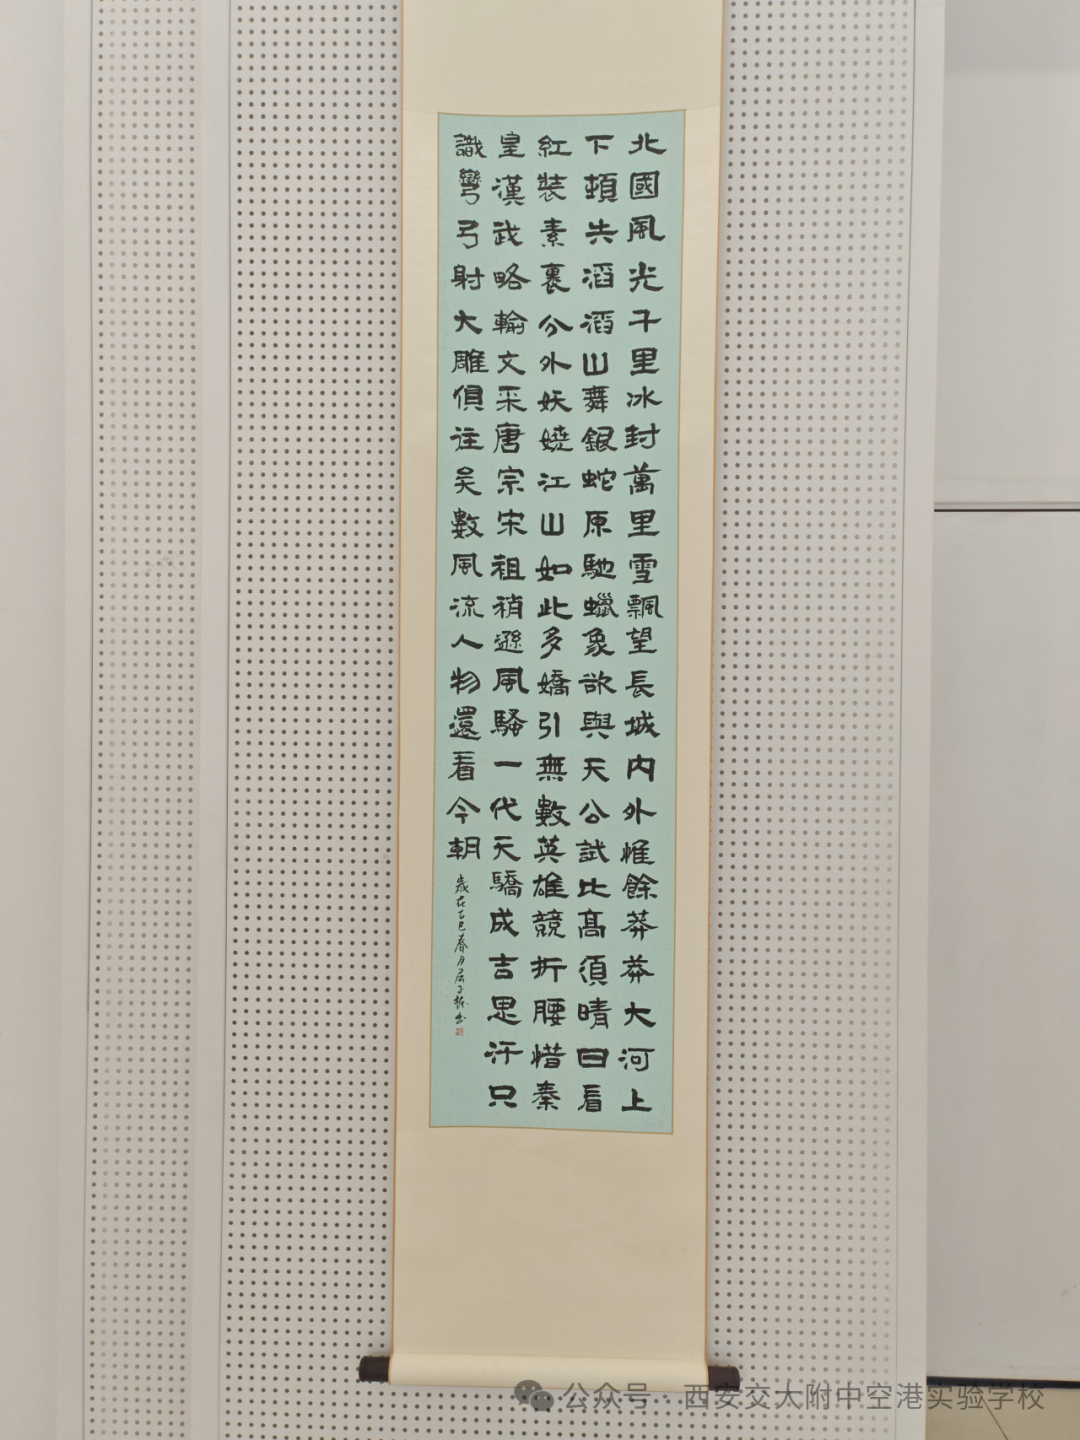 北國風光千里冰封萬里雪飄望長城内外惟餘莽莽大河上
下頓失滔滔山舞銀蛇原馳蠟象欲與天公試比高須晴日看
紅裝素裹分外妖嬈江山如此多嬌引無數英雄競折腰惜秦
皇漢武略輸文采唐宗宋祖稍遜風騷一代天驕成吉思汗只
識彎弓射大雕俱往矣數風流人物還看今朝
歲在乙巳春月
公众号 · 西安交大附中空港实验学校